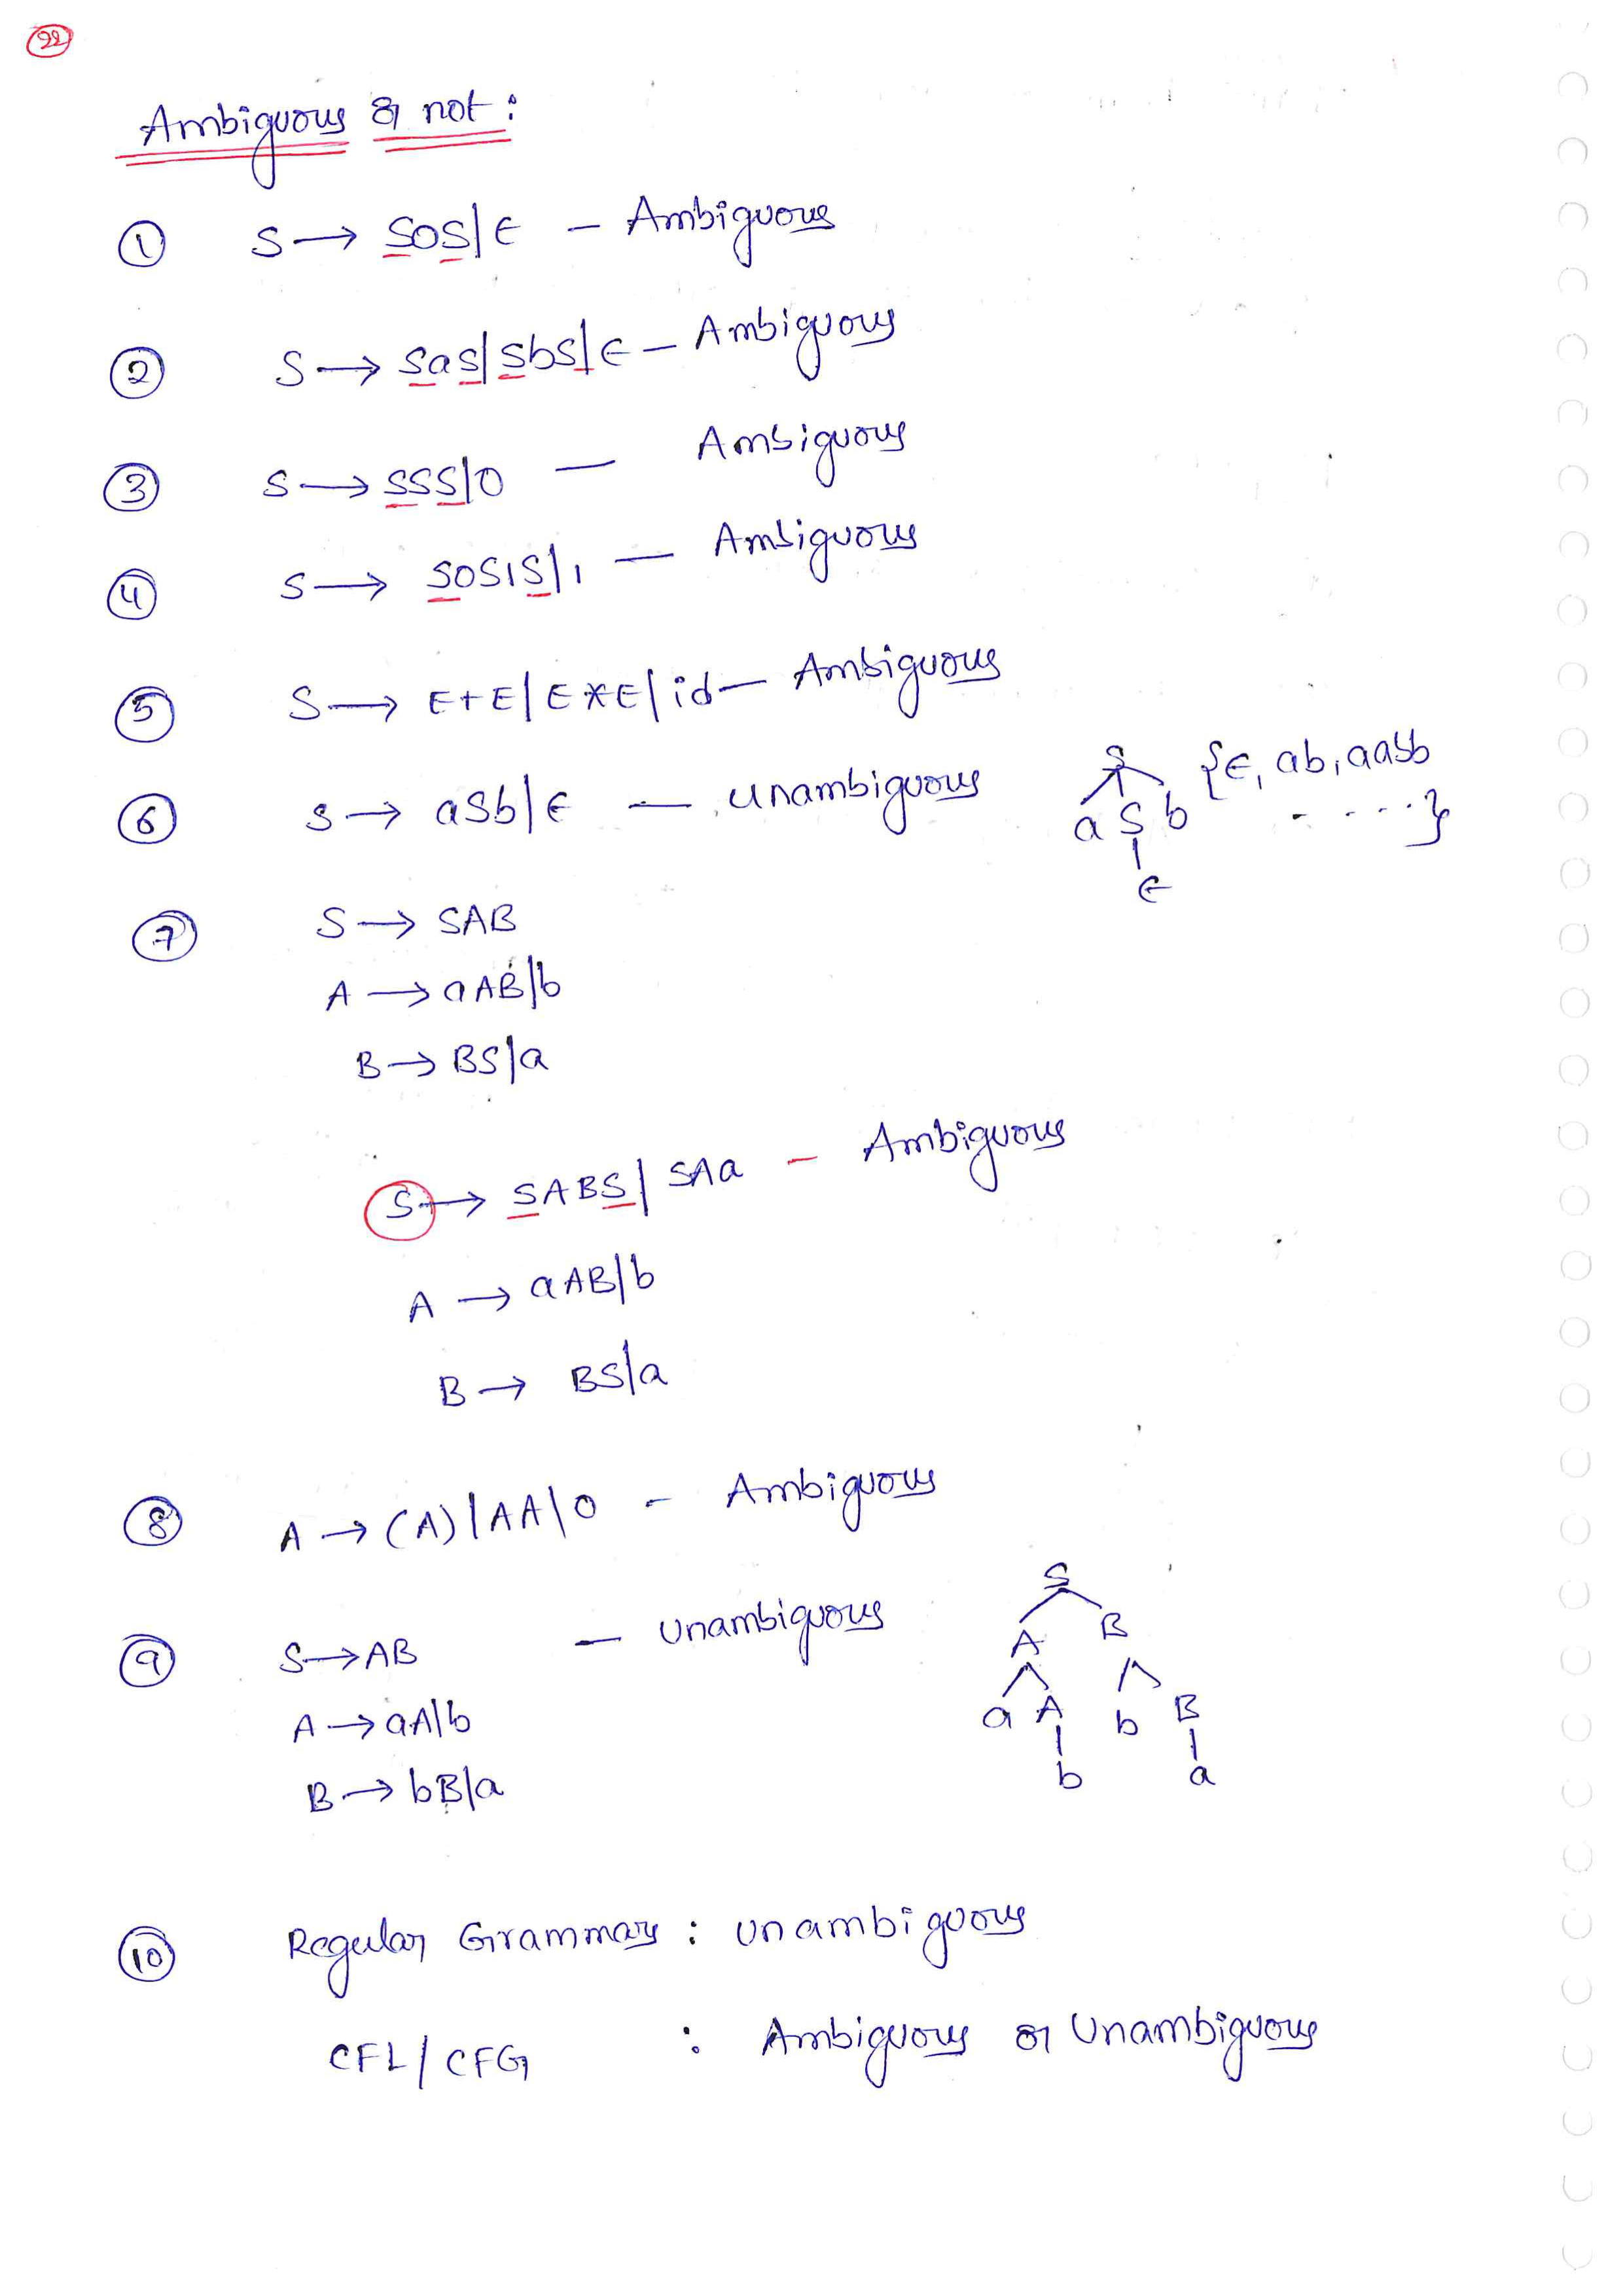 22
Ambiguous or not:
① S → S0S|ε - Ambiguous
② S → SaS|SbS|ε - Ambiguous
③ S → SSS|0 - Ambiguous
④ S → S0S1S|1 - Ambiguous
⑤ S → E+E|E*E|id - Ambiguous
⑥ S → aSb|ε - unambiguous
S {ε, ab, aaSb
a S b ....}
ε
⑦ S → SAB
A → aAB|b
B → BS|a
S → SABS|SAa - Ambiguous
A → aAB|b
B → BS|a
⑧ A → (A)|AA|0 - Ambiguous
⑨ S → AB - Unambiguous
A → aA|b
B → bB|a
S
A B
a A b B
b a
⑩ Regular Grammar : unambiguous
CFL/CFG : Ambiguous or Unambiguous